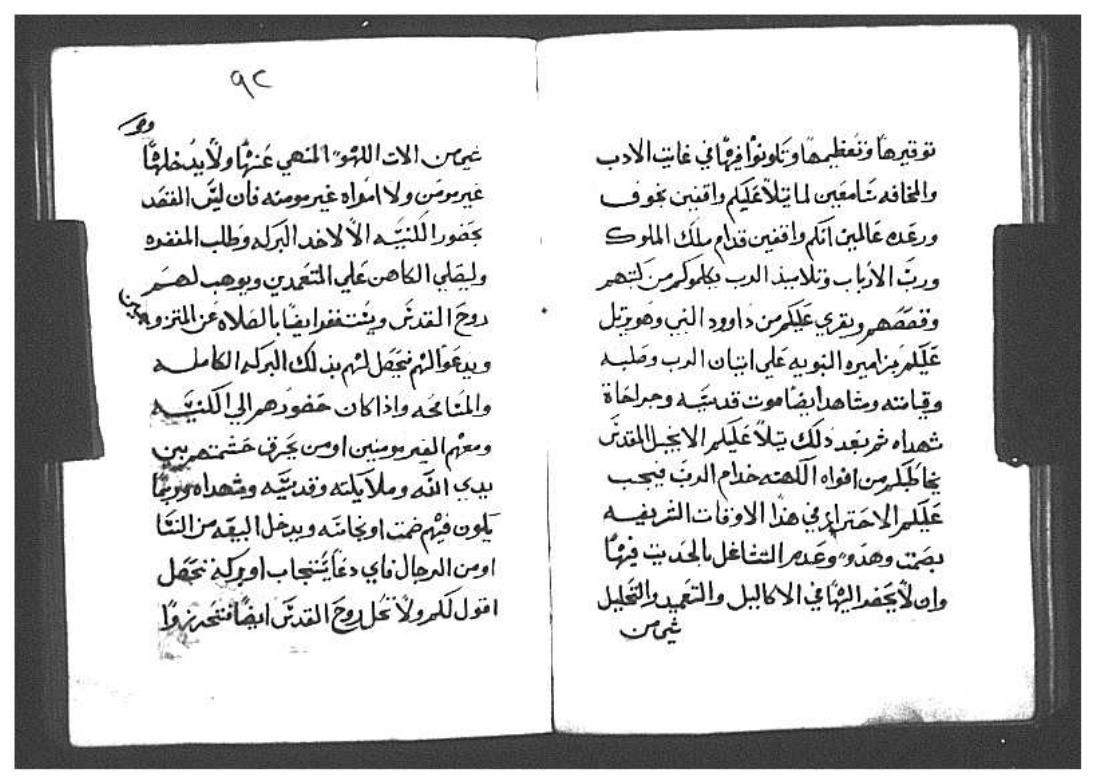 توقيرها وتعظيمها وتكونوا فيها في غايت الادب
والمخافه سامعين لما يتلا عليكم واقفين بخوف
ورعده عالمين انكم واقفين قدام ملك الملوك
ورب الارباب وتلاميذ الرب يكلموكم من كتبهم
وقصصهم ويقري عليكم من داوود النبي وهو يرتل
عليكم بمزاميره النبويه علي اتيان الرب وصلبه
وقيامته وشاهد ايضا موت قديسيه وجراحاة
شهداه ثم بعد ذلك يتلا عليكم الانجيل المقدس
يخاطبكم من افواه الكهنه خدام الرب فيجب
عليكم الاحتراز في هذا الاوقات الشريفه
بصمت وهدو وعدم التشاغل بالحديت فيها
وان لا يحضر اليها في الاكاليل والتعميد والتحليل
شي من
٩٢
شي من الات اللهو المنهي عنها ولا يدخلها
غير مومن ولا امراه غير مومنه فان ليس القصد
بحضور الكنيسه الا لاخد البركه وطلب المغفره
وليصلي الكاهن علي المتعمدين ويوهب لهم
روح القدس وينتفعوا ايضا بالصلاه عن المتزوجين
ويدعوا لهم فتحصل لهم بذلك البركه الكامله
والمسامحه واذا كان حضورهم الي الكنيسه
ومعهم الغير مومنين او من يحرق حشمتهم بين
يدي الله وملايكته وقديسيه وشهداه وربما
يكون فيهم ضمت او نجاسه ويدخل البيعه من النسا
او من الرجال فاي دعا يستجاب او بركه تحصل
اقول لكم ولا تحل روح القدس ايضا فتحرزوا